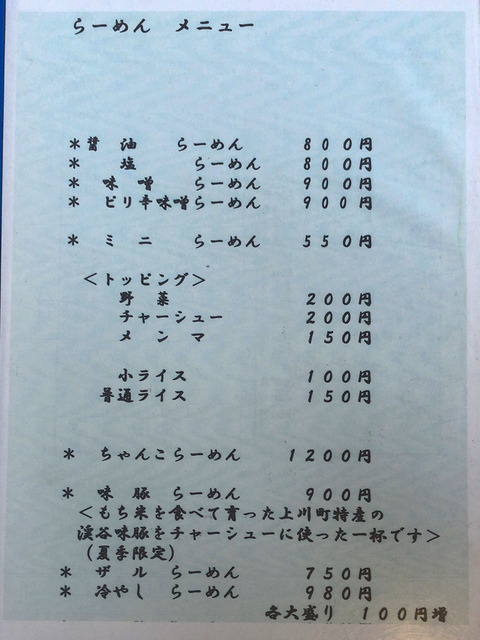 らーめん メニュー
＊醤 油 らーめん 800円
＊ 塩 らーめん 800円
＊ 味 噌 らーめん 900円
＊ ピリ辛味噌らーめん 900円
＊ ミ ニ らーめん 550円
＜トッピング＞
野 菜 200円
チャーシュー 200円
メ ン マ 150円
小ライス 100円
普通ライス 150円
＊ ちゃんこらーめん 1200円
＊ 味 豚 らーめん 900円
＜もち米を食べて育った上川町特産の
渓谷味豚をチャーシューに使った一杯です＞
（夏季限定）
＊ ザ ル らーめん 750円
＊ 冷やし らーめん 980円
各大盛り 100円増